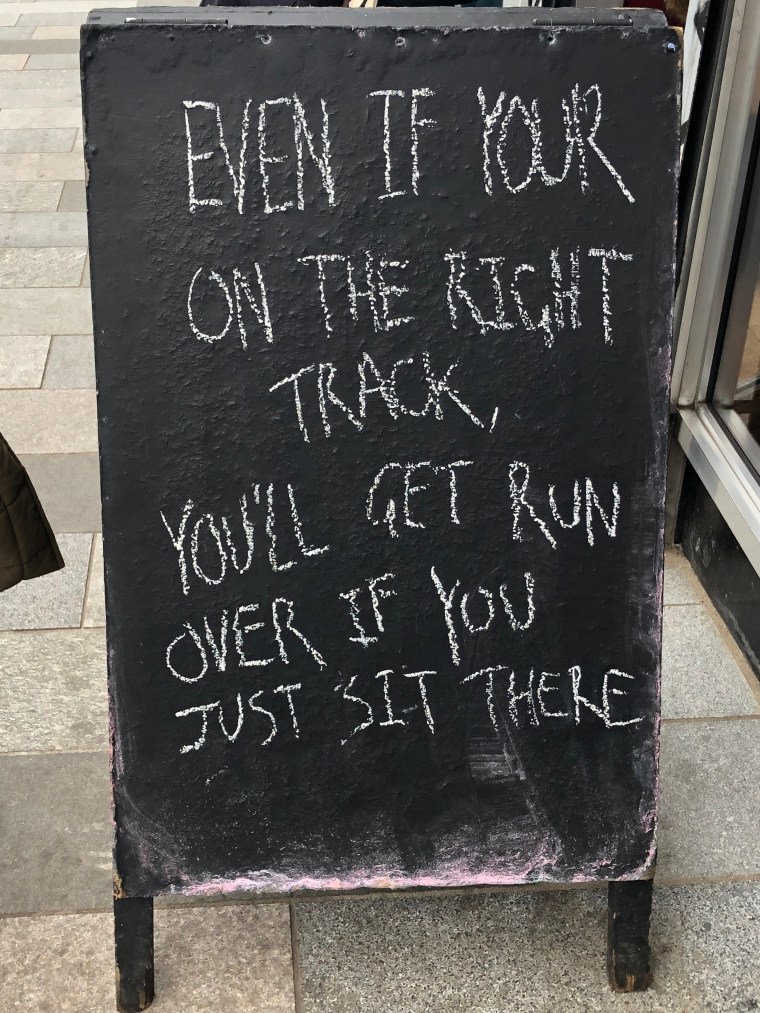 EVEN IF YOUR
ON THE RIGHT
TRACK,
YOU'LL GET RUN
OVER IF YOU
JUST SIT THERE